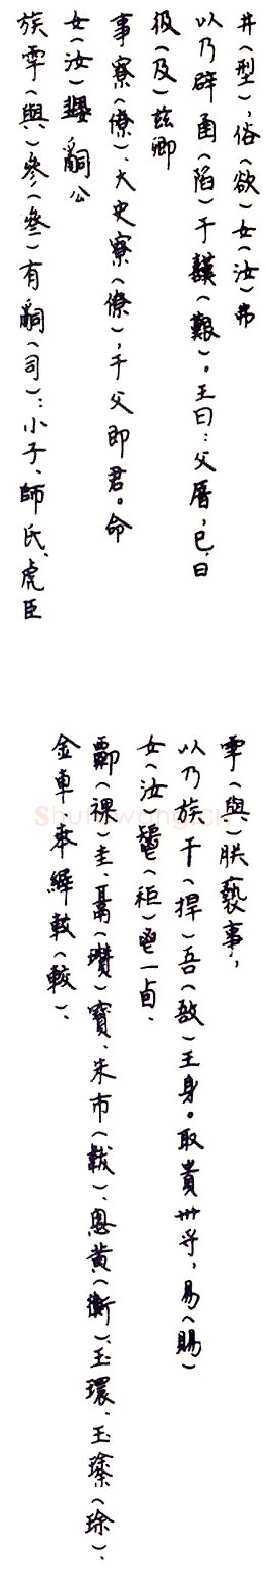 井(型),俗(欲)女(汝)弗
以乃辟圅(陷)于囏(艱)。王曰:父厝,巳,曰
彶(及)茲卿
事寮(僚)、大史寮(僚),于父即君。命
女(汝)𤔲公
族雩(與)參(叁)有嗣(司):小子、師氏、虎臣
雩(與)朕褻事,
以乃族干(捍)吾(敔)王身。取貴卅寽,易(賜)
女(汝)鬯一卣、
(祼)圭、鬲(瓚)寶、朱巿(韍)、恩黃(衡)、玉環、玉瑹(珠)、
金車、𠦪縟較(較)、